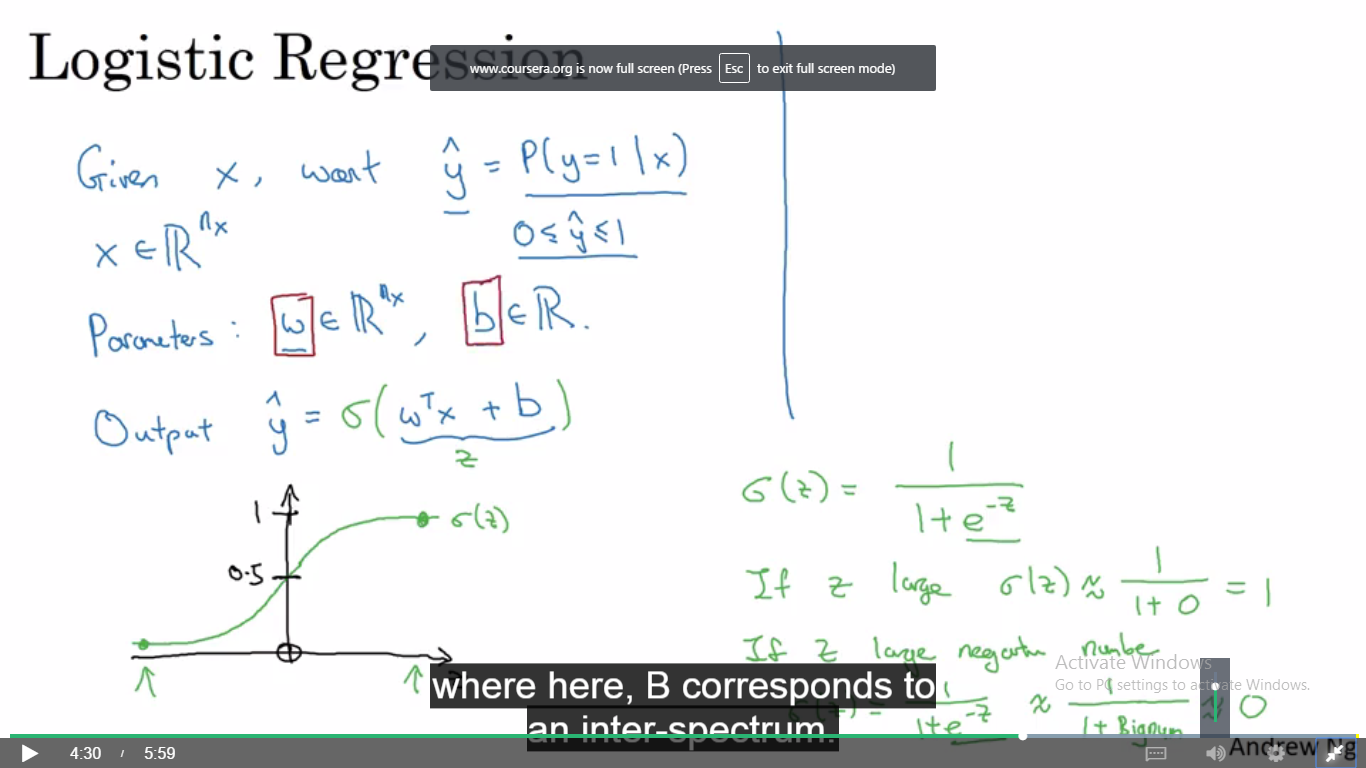 Logistic Regression
www.coursera.org is now full screen (Press Esc to exit full screen mode)
Given x, want ŷ = P(y=1 | x)
x ∈ ℝ^{nx}
0 ≤ ŷ ≤ 1
Parameters: w ∈ ℝ^{nx}, b ∈ ℝ.
Output ŷ = σ(wᵀx + b)
z
1
0.5
σ(z)
σ(z) = 1 / (1 + e^{-z})
If z large σ(z) ≈ 1 / (1 + 0) = 1
If z large negative number
σ(z) = 1 / (1 + e^{-z}) ≈ 1 / (1 + Bignum) ≈ 0
Activate Windows
Go to PC settings to activate Windows.
where here, B corresponds to
an inter-spectrum.
4:30 / 5:59
Andrew Ng